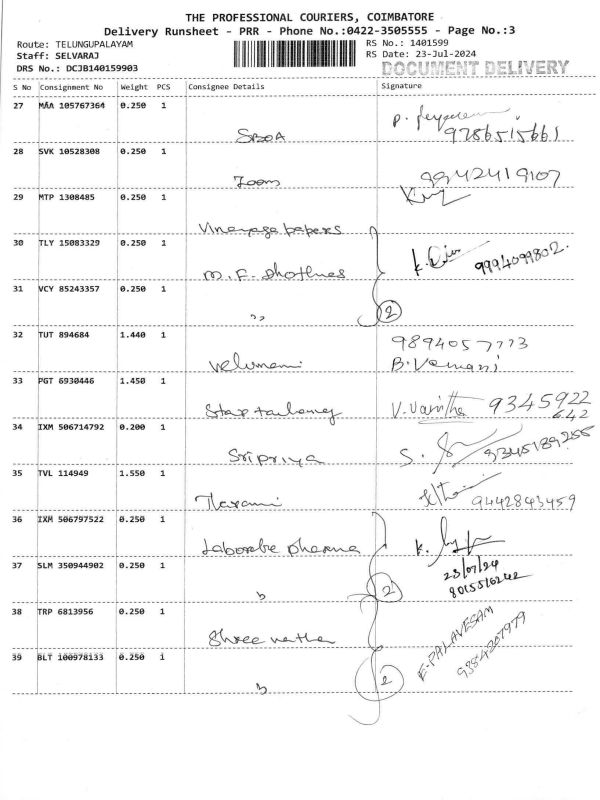 THE PROFESSIONAL COURIERS, COIMBATORE
Delivery Runsheet - PRR - Phone No.:0422-3505555 - Page No.:3
Route: TELUNGUPALAYAM RS No.: 1401599
Staff: SELVARAJ RS Date: 23-Jul-2024
DRS No.: DCJB140159903 DOCUMENT DELIVERY
S No Consignment No Weight PCS Consignee Details Signature
27 MAA 105767364 0.250 1
SBOA 9786515661
28 SVK 10528308 0.250 1
Zoom 9942419107
29 MTP 1308485 0.250 1
Vinayaga papers
30 TLY 15083329 0.250 1
M.F. 9994099802.
31 VCY 85243357 0.250 1
,, 2
32 TUT 894684 1.440 1 9894057773
Velumani
33 PGT 6930446 1.450 1
Star V. Vanitha 9345922
642
34 IXM 506714792 0.200 1
Sri priya S. 9345189255
35 TVL 114949 1.550 1
9442843459
36 IXM 506797522 0.250 1
Pharma K.
37 SLM 350944902 0.250 1 23/07/24
,, 2
38 TRP 6813956 0.250 1
Shree E. PALAVESAM
39 BLT 100978133 0.250 1 9384207979
,, 2